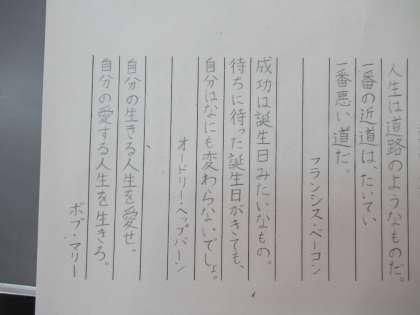 人生は道路のようなものだ。
一番の近道は、たいてい
一番悪い道だ。
フランシス・ベーコン
成功は誕生日みたいなもの。
待ちに待った誕生日がきても、
自分はなにも変わらないでしょ。
オードリー・ヘップバーン
自分の生きる人生を愛せ。
自分の愛する人生を生きろ。
ボブ・マリー